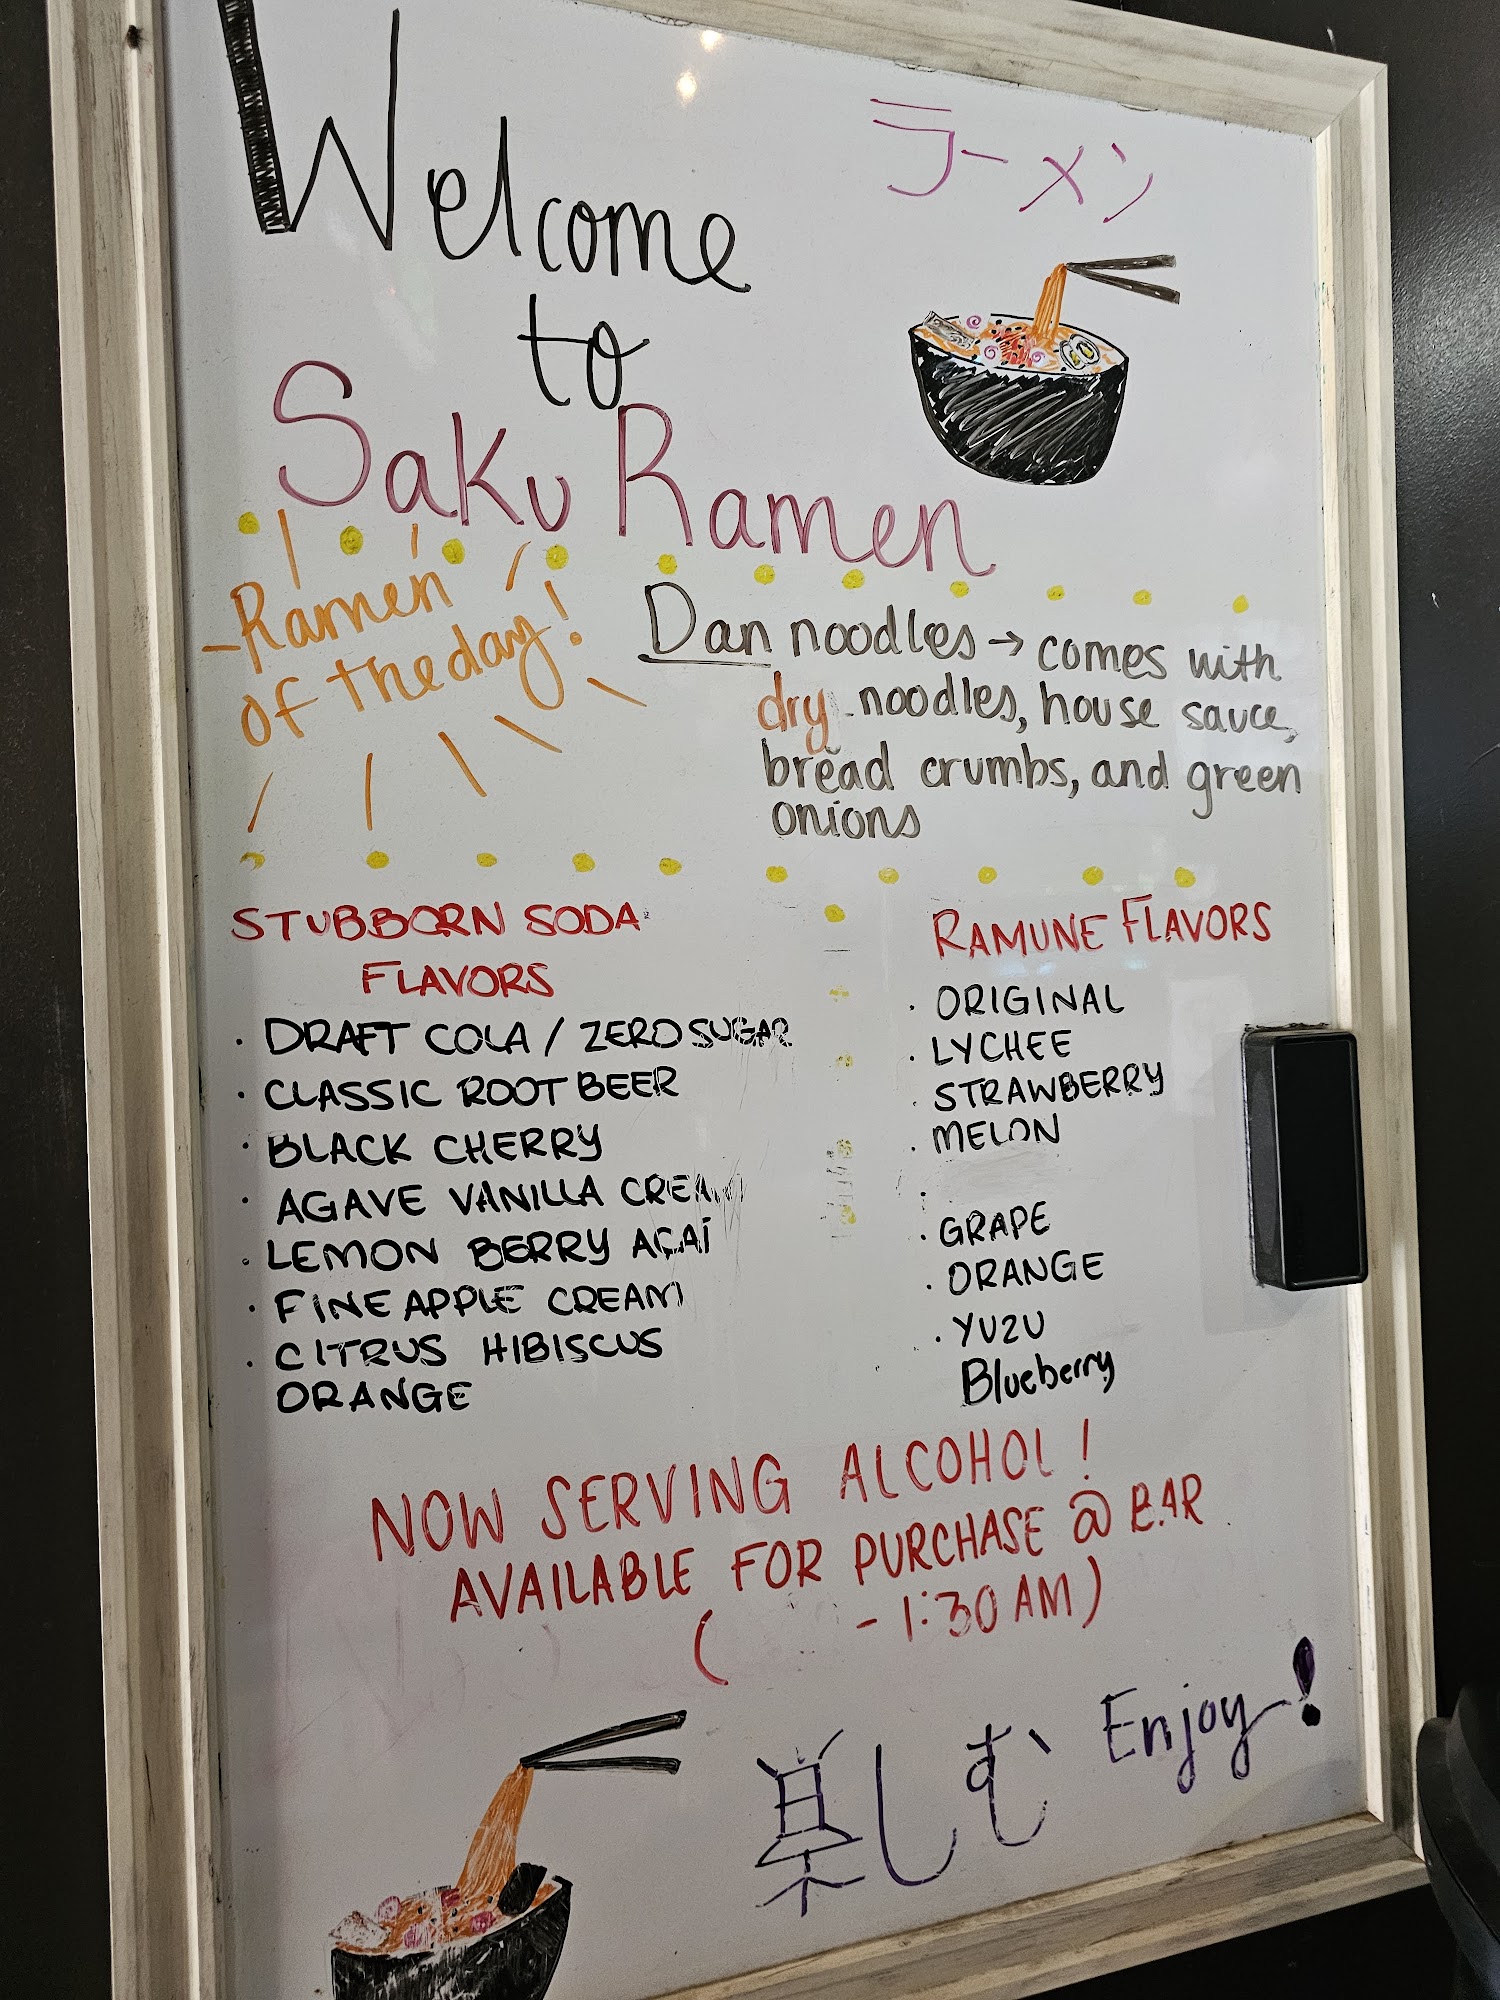 Welcome
ラーメン
to
Saku Ramen
Ramen
of the day!
Dan noodles → comes with
dry noodles, house sauce,
bread crumbs, and green
onions
STUBBORN SODA
FLAVORS
· DRAFT COLA / ZERO SUGAR
· CLASSIC ROOT BEER
· BLACK CHERRY
· AGAVE VANILLA CREAM
· LEMON BERRY AÇAÍ
· PINEAPPLE CREAM
· CITRUS HIBISCUS
ORANGE
RAMUNE FLAVORS
· ORIGINAL
· LYCHEE
· STRAWBERRY
· MELON
·
· GRAPE
· ORANGE
· YUZU
Blueberry
NOW SERVING ALCOHOL!
AVAILABLE FOR PURCHASE @ BAR
( - 1:30 AM)
楽しむ Enjoy!